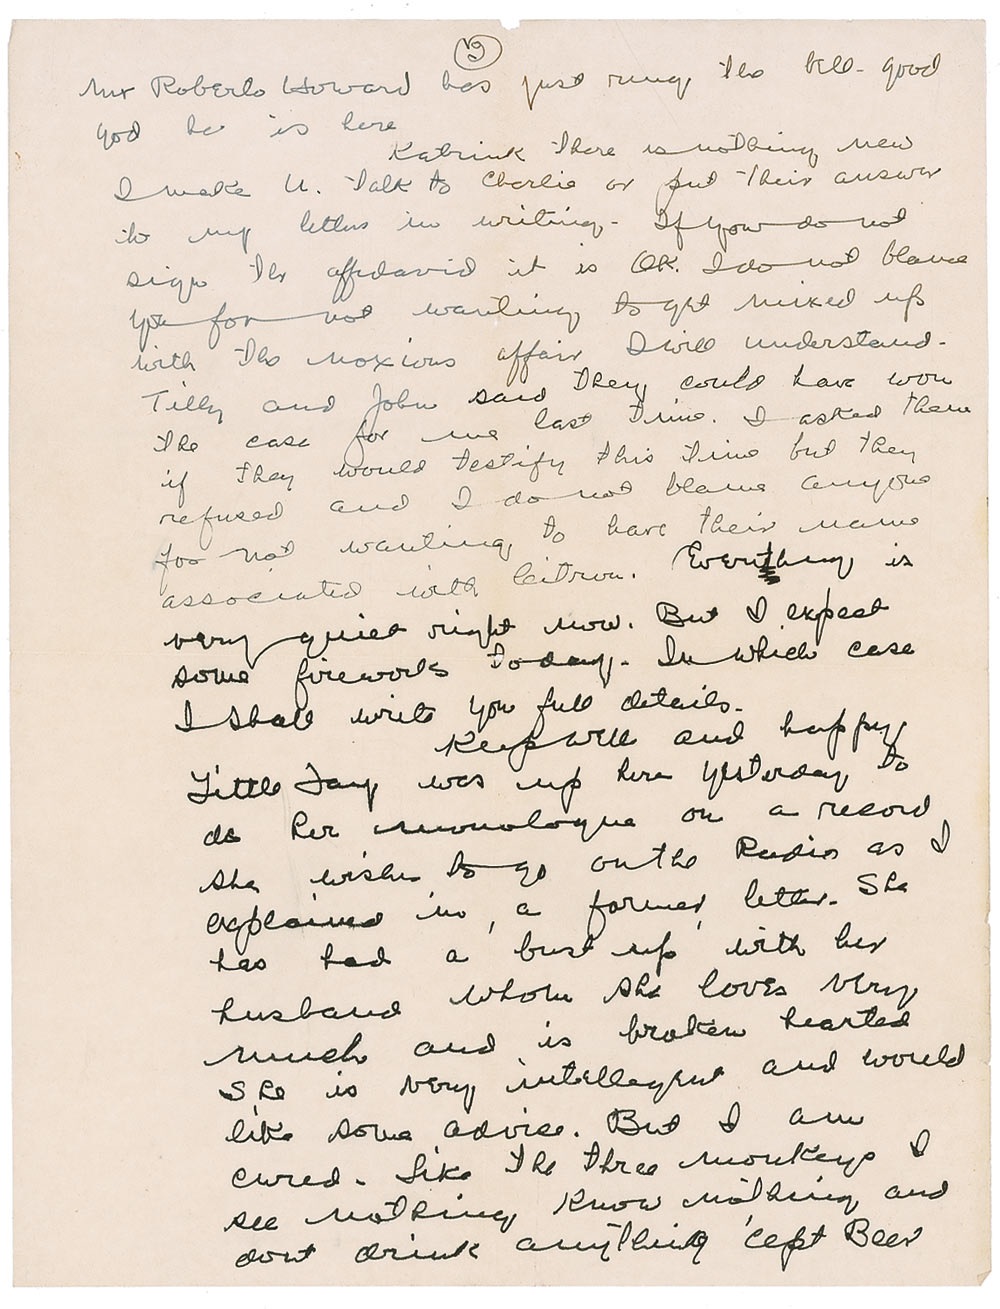 Mr Roberto Howard has just rung the bell - good
god he is here
Katrink there is nothing new
I make U. talk to Charlie or put their answer
to my letters in writing - If you do not
sign the affidavid it is OK. I do not blame
you for not wanting to get mixed up
with the noxious affair I will understand -
Tilly and John said they could have won
the case for me last time. I asked them
if they would testify this time but they
refused and I do not blame anyone
for not wanting to have their name
associated with Citron. Everything is
very quiet right now. But I expect
some fireworks today - In which case
I shall write you full details -
Keep well and happy
Little Fay was up here yesterday to
do her monologue on a record
she wishes to go on the Radio as I
explained in a former letter - She
has had a bust up with her
husband whom she loves very
much and is broken hearted
She is very intellegent and would
like some advice. But I am
cured - Like the three monkeys I
see nothing know nothing and
dont drink anything 'cept Beer